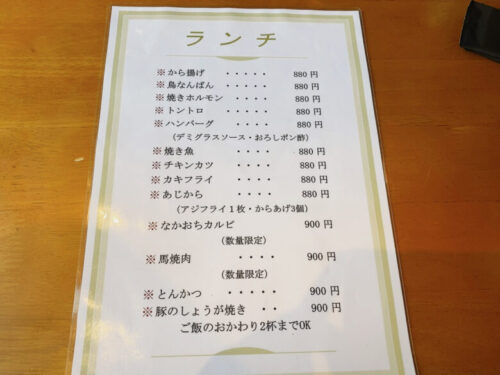 ランチ
※から揚げ ・・・・・ 880 円
※鳥なんばん ・・・・ 880 円
※焼きホルモン ・・・・ 880 円
※トントロ ・・・・ 880 円
※ハンバーグ ・・・・ 880 円
(デミグラスソース・おろしポン酢)
※焼き魚 ・・・・ 880 円
※チキンカツ ・・・・ 880 円
※カキフライ ・・・・ 880 円
※あじから ・・・・ 880 円
(アジフライ1枚・からあげ3個)
※なかおちカルビ 900 円
(数量限定)
※馬焼肉 ・・・・ 900 円
(数量限定)
※とんかつ ・・・・・ 900 円
※豚のしょうが焼き ・・ 900 円
ご飯のおかわり2杯までOK